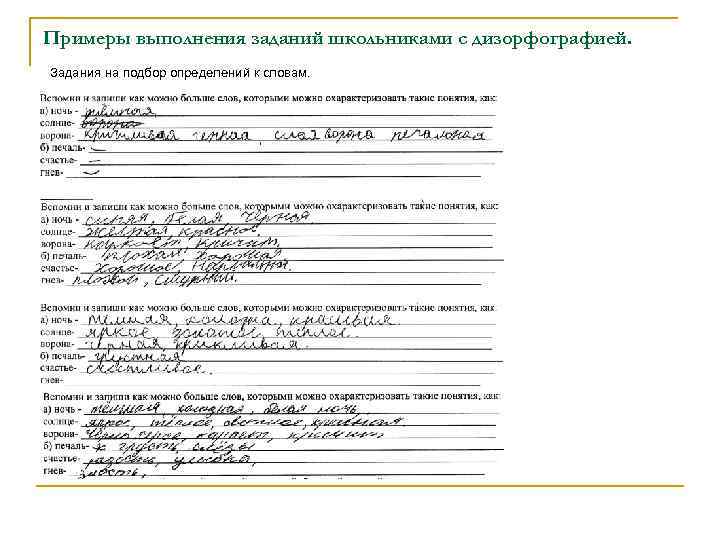 Примеры выполнения заданий школьниками с дизорфографией.
Задания на подбор определений к словам.
Вспомни и запиши как можно больше слов, которыми можно охарактеризовать такие понятия, как:
а) ночь -
солнце-
ворона- черная слая ворона печальная
б) печаль- –
счастье- –
гнев-
Вспомни и запиши как можно больше слов, которыми можно охарактеризовать такие понятия, как:
а) ночь - синяя, белая чёрная
солнце- желтая, красное.
ворона- каркает, кричит.
б) печаль- плохая хорошая
счастье- хорошое,
гнев- плохой,
Вспомни и запиши как можно больше слов, которыми можно охарактеризовать такие понятия, как:
а) ночь -
солнце- яркое
ворона- чёрная, крикливая.
б) печаль- грустная
счастье- счастливое.
гнев-
Вспомни и запиши как можно больше слов, которыми можно охарактеризовать такие понятия, как:
а) ночь - холодная, белая ночь,
солнце-
ворона- каркает, кричит
б) печаль- грусть, слёзы
счастье- радость, улыбка,
гнев- злость,